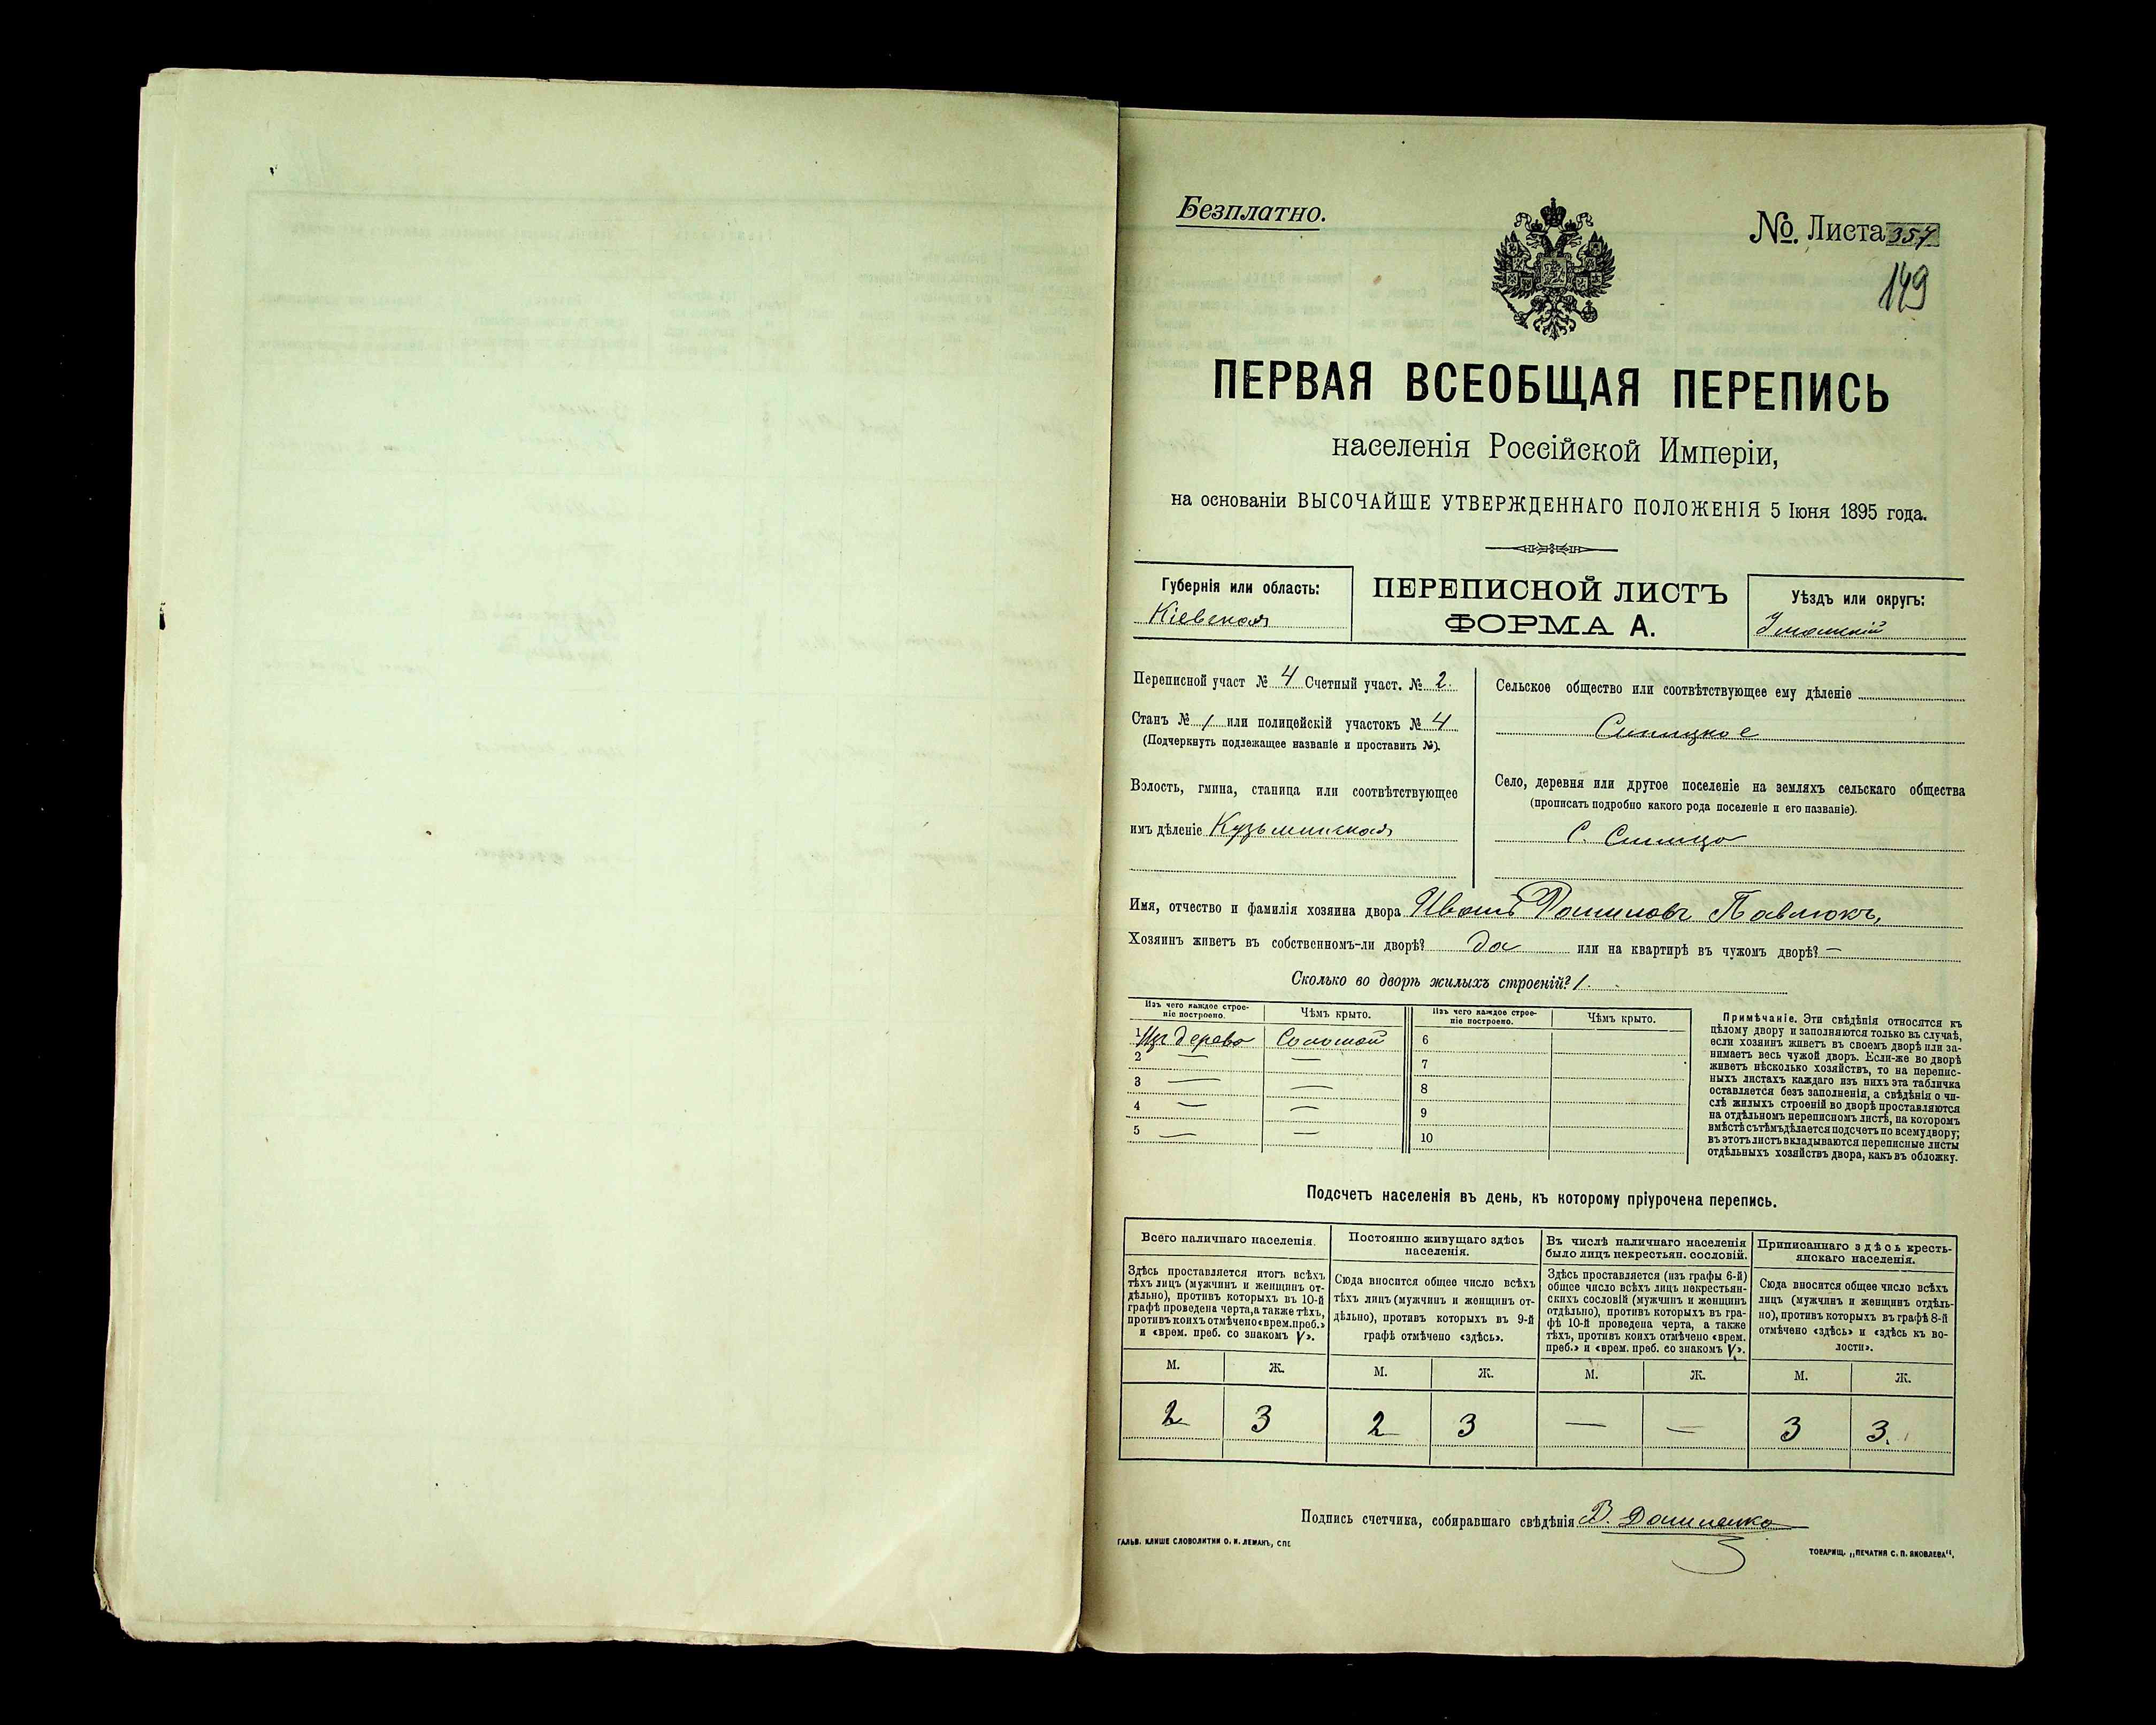 Безплатно.
№. Листа 357
149
ПЕРВАЯ ВСЕОБЩАЯ ПЕРЕПИСЬ
населенія Россійской Имперіи,
на основаніи ВЫСОЧАЙШЕ УТВЕРЖДЕННАГО ПОЛОЖЕНІЯ 5 Іюня 1895 года.
Губернія или область:
Кіевская
ПЕРЕПИСНОЙ ЛИСТЪ
ФОРМА А.
Уѣздъ или округъ:
Уманскій
Переписной участ № 4 Счетный участ. № 2.
Станъ № 1 или полицейскій участокъ № 4
(Подчеркнуть подлежащее названіе и проставить №).
Волость, гмина, станица или соотвѣтствующее
имъ дѣленіе Кузьминская
Сельское общество или соотвѣтствующее ему дѣленіе
Синицкое
Село, деревня или другое поселеніе на земляхъ сельскаго общества
(прописать подробно какого рода поселеніе и его названіе).
С. Синица
Имя, отчество и фамилія хозяина двора Иванъ Павлюкъ,
Хозяинъ живетъ въ собственномъ-ли дворѣ? да или на квартирѣ въ чужомъ дворѣ? —
Сколько во дворѣ жилыхъ строеній? 1.
Изъ чего каждое строе-
ніе построено.
Чѣмъ крыто.
Изъ чего каждое строе-
ніе построено.
Чѣмъ крыто.
1 Изъ дерева Соломой
2 — —
3 — —
4 — —
5 — —
6
7
8
9
10
Примѣчаніе. Эти свѣдѣнія относятся къ
цѣлому двору и заполняются только въ случаѣ,
если хозяинъ живетъ въ своемъ дворѣ или за-
нимаетъ весь чужой дворъ. Если-же во дворѣ
живетъ нѣсколько хозяйствъ, то на перепис-
ныхъ листахъ каждаго изъ нихъ эта табличка
оставляется безъ заполненія, а свѣдѣнія о чи-
слѣ жилыхъ строеній во дворѣ проставляются
на отдѣльномъ переписномъ листѣ, на которомъ
вмѣстѣ съ тѣмъ дѣлается подсчетъ по всему двору;
въ этотъ листъ вкладываются переписные листы
отдѣльныхъ хозяйствъ двора, какъ въ обложку.
Подсчетъ населенія въ день, къ которому пріурочена перепись.
Всего наличнаго населенія.
Здѣсь проставляется итогъ всѣхъ
тѣхъ лицъ (мужчинъ и женщинъ от-
дѣльно), противъ которыхъ въ 10-й
графѣ проведена черта, а также тѣхъ,
противъ коихъ отмѣчено «врем. преб.»
и «врем. преб. со знакомъ V».
М. Ж.
2 3
Постоянно живущаго здѣсь
населенія.
Сюда вносится общее число всѣхъ
тѣхъ лицъ (мужчинъ и женщинъ от-
дѣльно), противъ которыхъ въ 9-й
графѣ отмѣчено «здѣсь».
М. Ж.
2 3
Въ числѣ наличнаго населенія
было лицъ некрестьян. сословій.
Здѣсь проставляется (изъ графы 6-й)
общее число всѣхъ лицъ некрестьян-
скихъ сословій (мужчинъ и женщинъ
отдѣльно), противъ которыхъ въ гра-
фѣ 10-й проведена черта, а также
тѣхъ, противъ коихъ отмѣчено «врем.
преб.» и «врем. преб. со знакомъ V».
М. Ж.
— —
Приписаннаго здѣсь кресть-
янскаго населенія.
Сюда вносится общее число всѣхъ
лицъ (мужчинъ и женщинъ отдѣль-
но), противъ которыхъ въ графѣ 8-й
отмѣчено «здѣсь» и «здѣсь къ во-
лости».
М. Ж.
3 3.
Подпись счетчика, собиравшаго свѣдѣнія В. Даниленко
ГАЛЬВ. КЛИШЕ СЛОВОЛИТНИ О. И. ЛЕМАНЪ, СПБ
ТОВАРИЩ. „ПЕЧАТНЯ С. П. ЯКОВЛЕВА“.